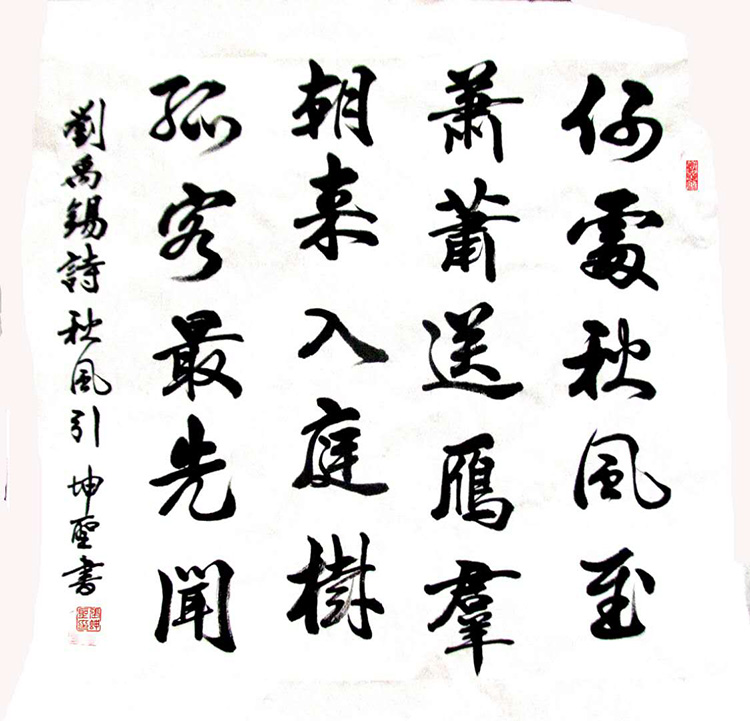 何處秋風至
蕭蕭送鴈羣
朝来入庭樹
孤客最先聞
劉禹錫詩秋風引 坤聖書